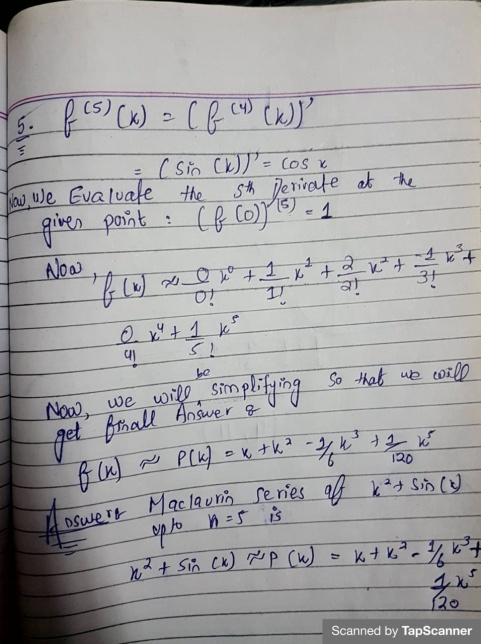 5. f^(5) (x) = (f^(4) (x))'
= (Sin (x))' = Cos x
Now, We Evaluate the 5th Derivate at the
given point : (f(0))^(5) = 1
Now, f(x) ≈ 0/0! x^0 + 1/1! x^1 + 2/2! x^2 + -1/3! x^3 +
0/4! x^4 + 1/5! x^5
Now, we will be simplifying So that we will
get finall Answer :
f(x) ≈ P(x) = x + x^2 - 1/6 x^3 + 1/120 x^5
Answer: Maclaurin Series of x^2 + Sin (x)
upto n = 5 is
x^2 + Sin (x) ≈ P(x) = x + x^2 - 1/6 x^3 +
1/120 x^5
Scanned by TapScanner